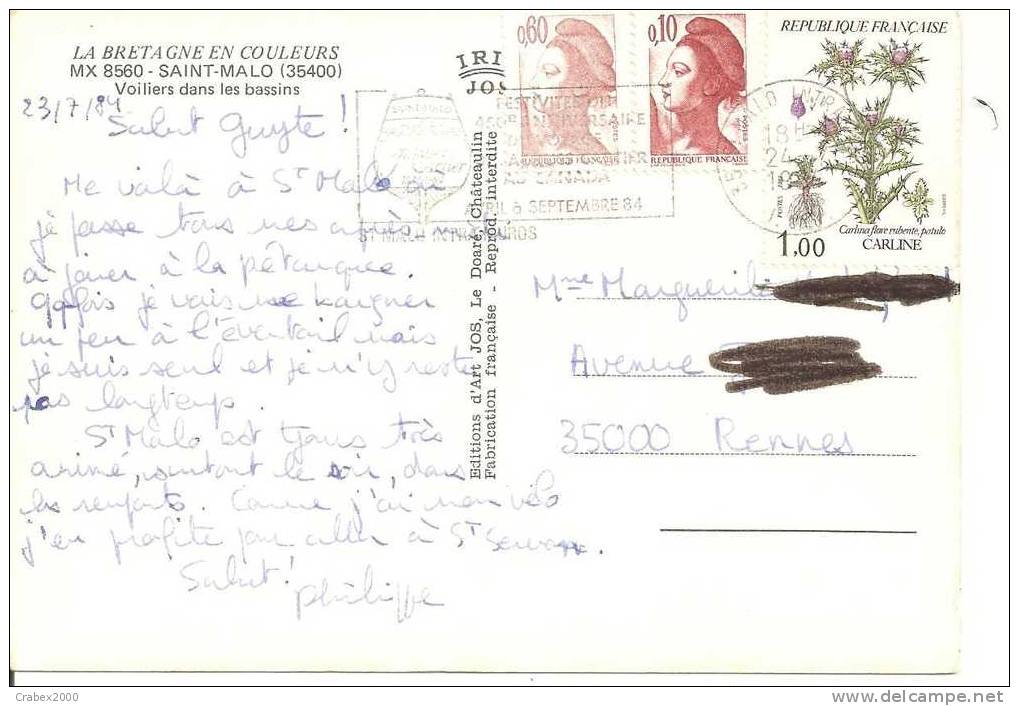 LA BRETAGNE EN COULEURS
MX 8560 - SAINT-MALO (35400)
Voiliers dans les bassins
23/7/84
Salut Guyte !
Me voilà à St Malo où
je passe tous mes après-midi
à jouer à la pétanque.
Qqfois je vais me baigner
un peu à l'éventail mais
je suis seul et je n'y reste
pas longtemps.
St Malo est tjours très
animé, surtout le soir, dans
les remparts. Comme j'ai mon vélo
j'en profite pour aller à St Servan.
Salut !
Philippe
IRIS
JOS
Editions d'Art JOS, Le Doaré, Châteaulin
Fabrication française - Reprod. interdite
0,60
REPUBLIQUE FRANÇAISE
0,10
REPUBLIQUE FRANÇAISE
REPUBLIQUE FRANÇAISE
POSTES
Carlina flore rubente, patulo
1,00
CARLINE
FESTIVITES DU
450e ANNIVERSAIRE
CARTIER
AU CANADA
AVRIL à SEPTEMBRE 84
ST MALO INTRA MUROS
18 H
24
Mme Marguerite
Avenue
35000 Rennes
Crabex2000
delcampe.net